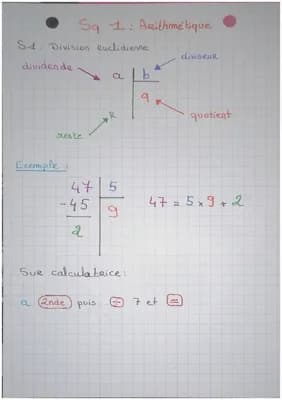 Sq 1 : Arithmétique
S-1 Division euclidienne
diviseur
dividende
a b
q
R
quotient
reste
Exemple :
47 5
-45 9
2
47 = 5 x 9 + 2
Sur calculatrice :
a 2nde puis ÷ 7 et =